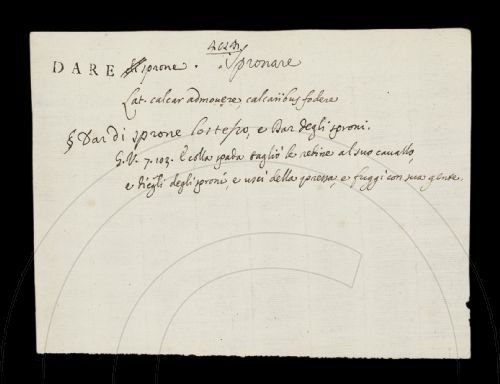 DARE sprone. Spronare
Lat. calcar admovere calcaribus fodere
§ Dar di sprone lo stesso, e Dar degli sproni.
G.V. 7. 103. E colla spada tagliò le retine al suo cavallo,
e diegli degli sproni, e uscì della pressa, e fuggì con sua gente.